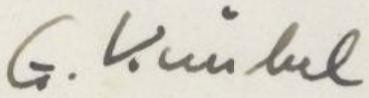 G. Künbel